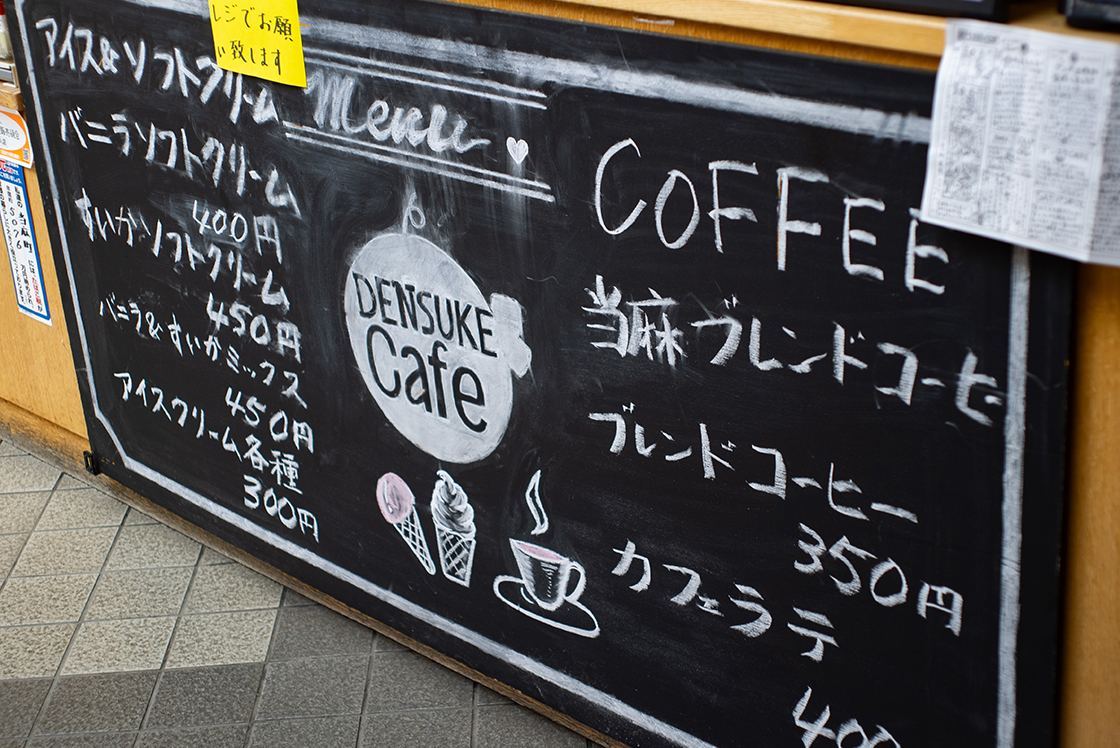 レジでお願
い致します
アイス&ソフトクリーム
バニラソフトクリーム
400円
すいかソフトクリーム
450円
バニラ&すいかミックス
450円
アイスクリーム各種
300円
Menu
DENSUKE
Cafe
COFFEE
当麻ブレンドコーヒ
ブレンドコーヒー
350円
カフェラテ
400